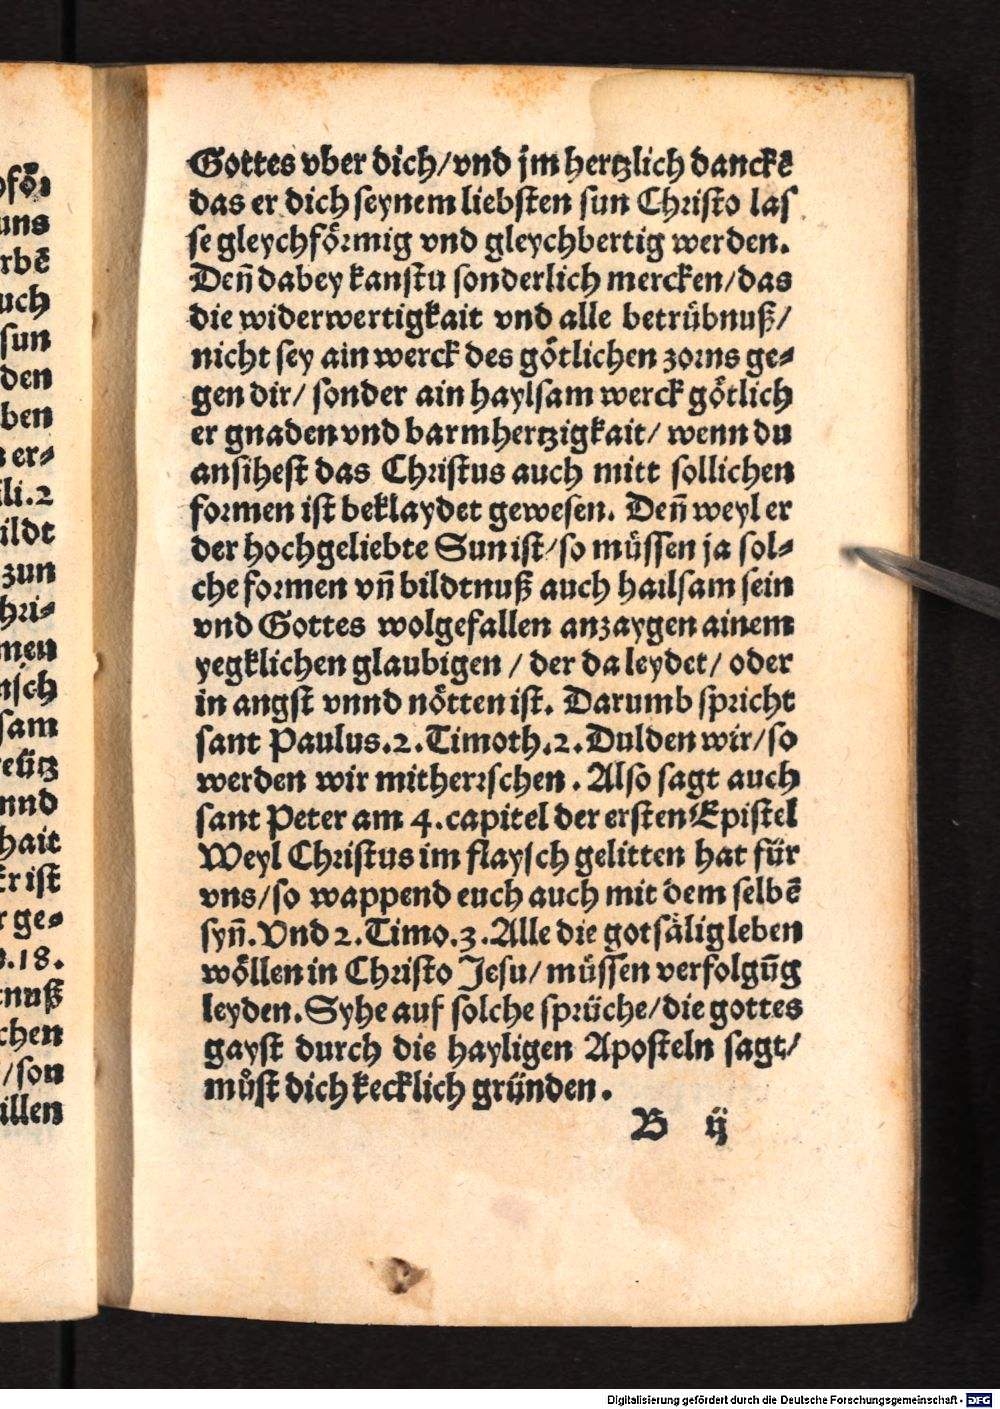 Gottes vber dich/vnd jm hertzlich danckē
das er dich seynem liebsten sun Christo las
se gleychförmig vnd gleychbertig werden.
Deñ dabey kanstu sonderlich mercken/das
die widerwertigkait vnd alle betrübnuß/
nicht sey ain werck des götlichen zorns ge⸗
gen dir/ sonder ain haylsam werck götlich
er gnaden vnd barmhertzigkait/ wenn du
ansihest das Christus auch mitt sollichen
formen ist beklaydet gewesen. Deñ weyl er
der hochgeliebte Sun ist/so müssen ja sol⸗
che formen vñ bildtnuß auch hailsam sein
vnd Gottes wolgefallen anzaygen ainem
yegklichen glaubigen / der da leydet/ oder
in angst vnnd nötten ist. Darumb spricht
sant Paulus.2.Timoth.2.Dulden wir/so
werden wir mitherrschen. Also sagt auch
sant Peter am 4.capitel der ersten Epistel
Weyl Christus im flaysch gelitten hat für
vns/so wappend euch auch mit dem selbē
syñ.Vnd 2.Timo.3.Alle die gotsälig leben
wöllen in Christo Jesu/ müssen verfolgūg
leyden.Syhe auf solche sprüche/die gottes
gayst durch die hayligen Aposteln sagt/
můst dich kecklich gründen.
B ij
uns
rbē
uch
sun
den
ben
er⸗
li.2
ildt
zun
hri⸗
men
nsch
sam
nnd
hait
Er ist
r ge⸗
.18.
tnuß
chen
/son
illen
Digitalisierung gefördert durch die Deutsche Forschungsgemeinschaft - DFG